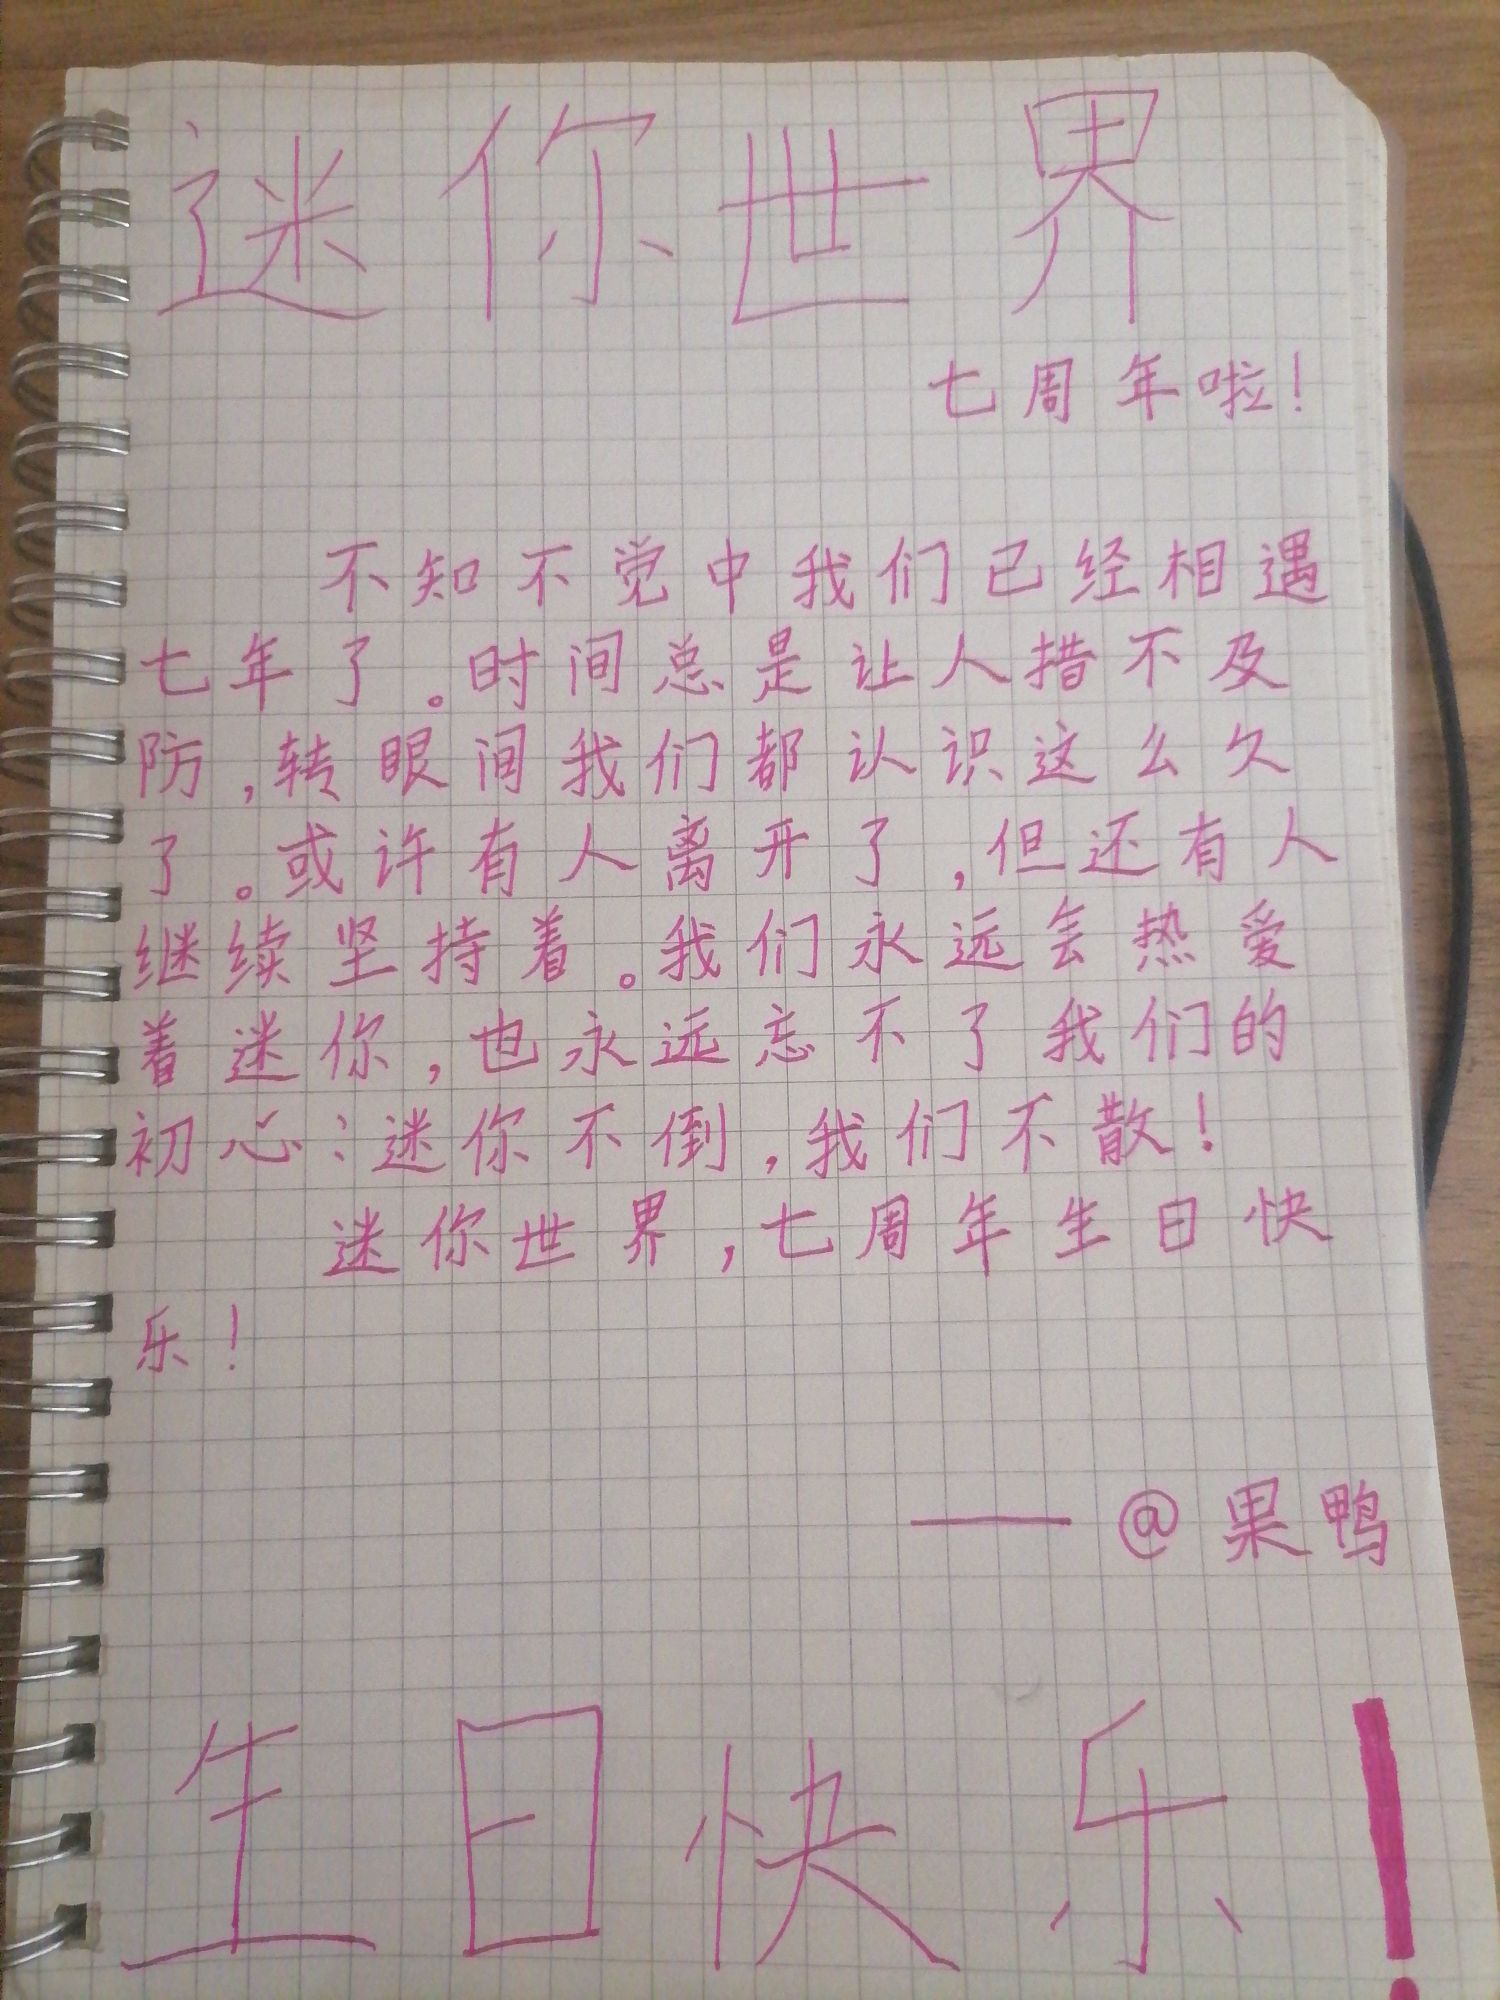 迷你世界
七周年啦!
不知不觉中我们已经相遇
七年了。时间总是让人措不及
防,转眼间我们都认识这么久
了。或许有人离开了,但还有人
继续坚持着。我们永远会热爱
着迷你,也永远忘不了我们的
初心:迷你不倒,我们不散!
迷你世界,七周年生日快
乐!
——@果鸭
生日快乐!